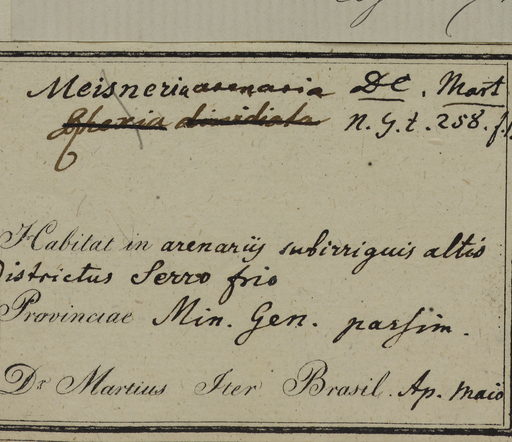 Meisneria arenaria DC. Mart
dimidiata N. G. t. 258. f.
Habitat in arenariis subirriguis altis
Districtus Serro frio
Provinciae Min. Gen. passim.
Dr Martius Iter Brasil. Ap. Maio